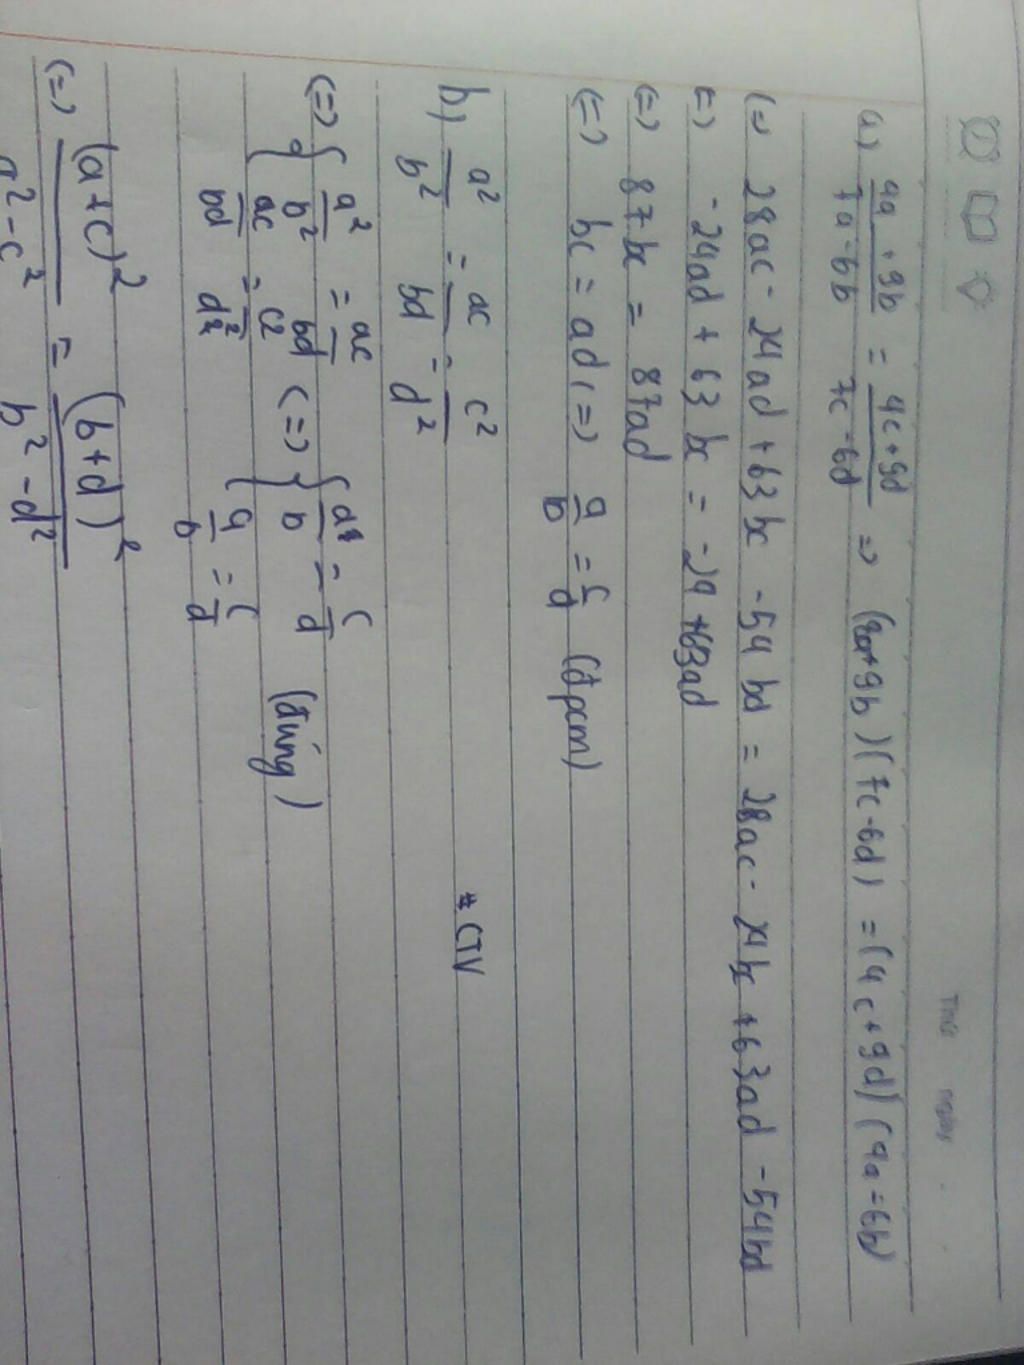 Thứ ngày
a) 4a + 9b / 7a - 6b = 4c + 9d / 7c - 6d => (4a+9b)(7c-6d) = (4c+9d)(7a-6b)
(=) 28ac - 24ad + 63bc - 54bd = 28ac - 24bc + 63ad - 54bd
(=) -24ad + 63bc = -24 + 63ad
(=) 87bc = 87ad
(=) bc = ad (=) a/b = c/d (đpcm)
b) a²/b² = ac/bd = c²/d²
# CTV
(=) { a²/b² = ac/bd (=) { a/b = c/d
{ ac/bd = c²/d² { a/b = c/d (đúng)
(=) (a+c)²/a²-c² = (b+d)²/b²-d²